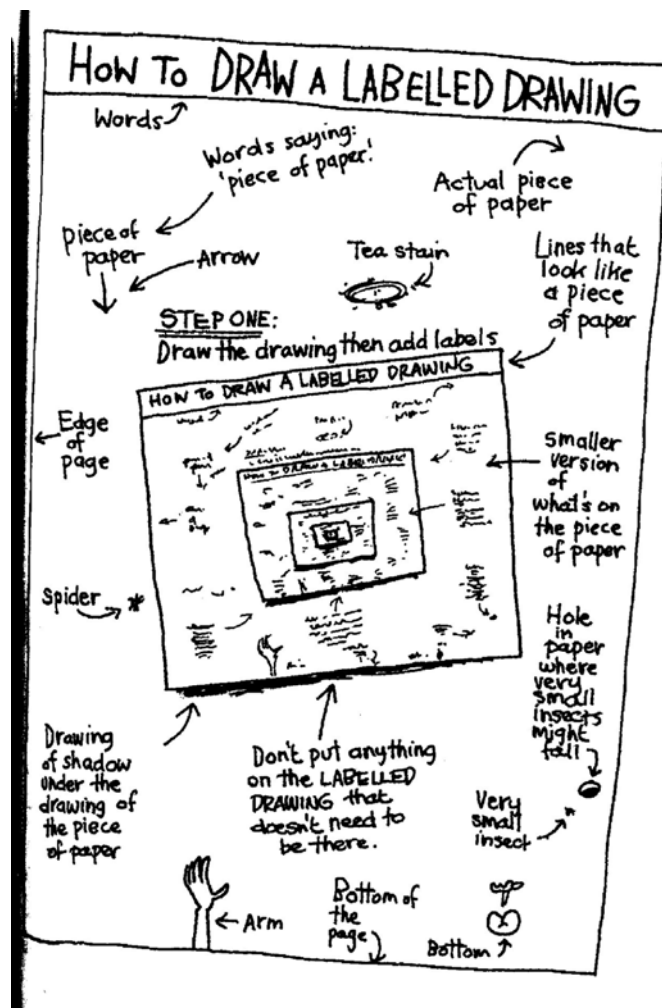 HOW TO DRAW A LABELLED DRAWING
Words
Words saying:
'piece of paper.'
Actual piece
of paper
piece of
paper
Arrow
Tea stain
Lines that
look like
a piece
of paper
STEP ONE:
Draw the drawing then add labels
HOW TO DRAW A LABELLED DRAWING
Edge
of
page
HOW TO DRAW A LABELLED DRAWING
smaller
version
of
what's on
the piece
of paper
Spider
Hole
in
paper
where
very
small
insects
might
fall
Drawing
of shadow
under the
drawing of
the piece
of paper
Don't put anything
on the LABELLED
DRAWING that
doesn't need to
be there.
Very
small
insect
Arm
Bottom of
the
page
Bottom